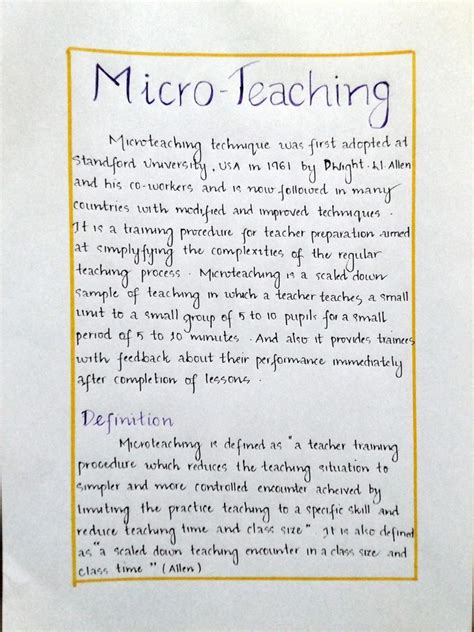 Micro-Teaching
Microteaching technique was first adopted at
Standford University, USA in 1961 by Dwight.W.Allen
and his co-workers and is now followed in many
countries with modified and improved techniques.
It is a training procedure for teacher preparation aimed
at simplyfying the complexities of the regular
teaching process. Microteaching is a scaled down
sample of teaching in which a teacher teaches a small
unit to a small group of 5 to 10 pupils for a small
period of 5 to 10 minutes. And also it provides trainees
with feedback about their performance immediately
after completion of lessons.
Definition
Microteaching is defined as "a teacher training
procedure which reduces the teaching situation to
simpler and more controlled encounter acheived by
limiting the practice teaching to a specific skill and
reduce teaching time and class size" It is also defined
as "a scaled down teaching encounter in a class size and
class time" (Allen)